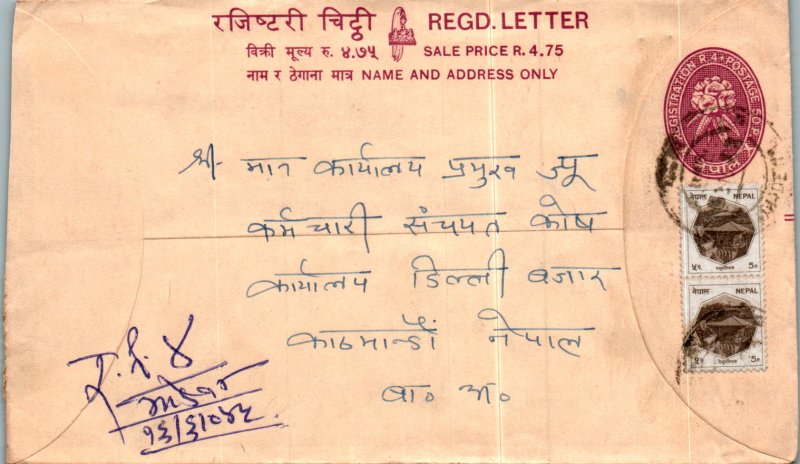 रजिष्टरी चिट्ठी REGD. LETTER
बिक्री मूल्य रु. ४.७५ SALE PRICE R. 4.75
नाम र ठेगाना मात्र NAME AND ADDRESS ONLY
REGISTRATION R.4+POSTAGE 50P
नेपाल
श्री- मान कार्यालय प्रमुख ज्यू
कर्मचारी संचयत कोष
कार्यालय डिल्ली बजार
काठमाण्डौं नेपाल
बा० अ०
नेपाल NEPAL
५प. 5P.
नेपाल NEPAL
५प. 5P.